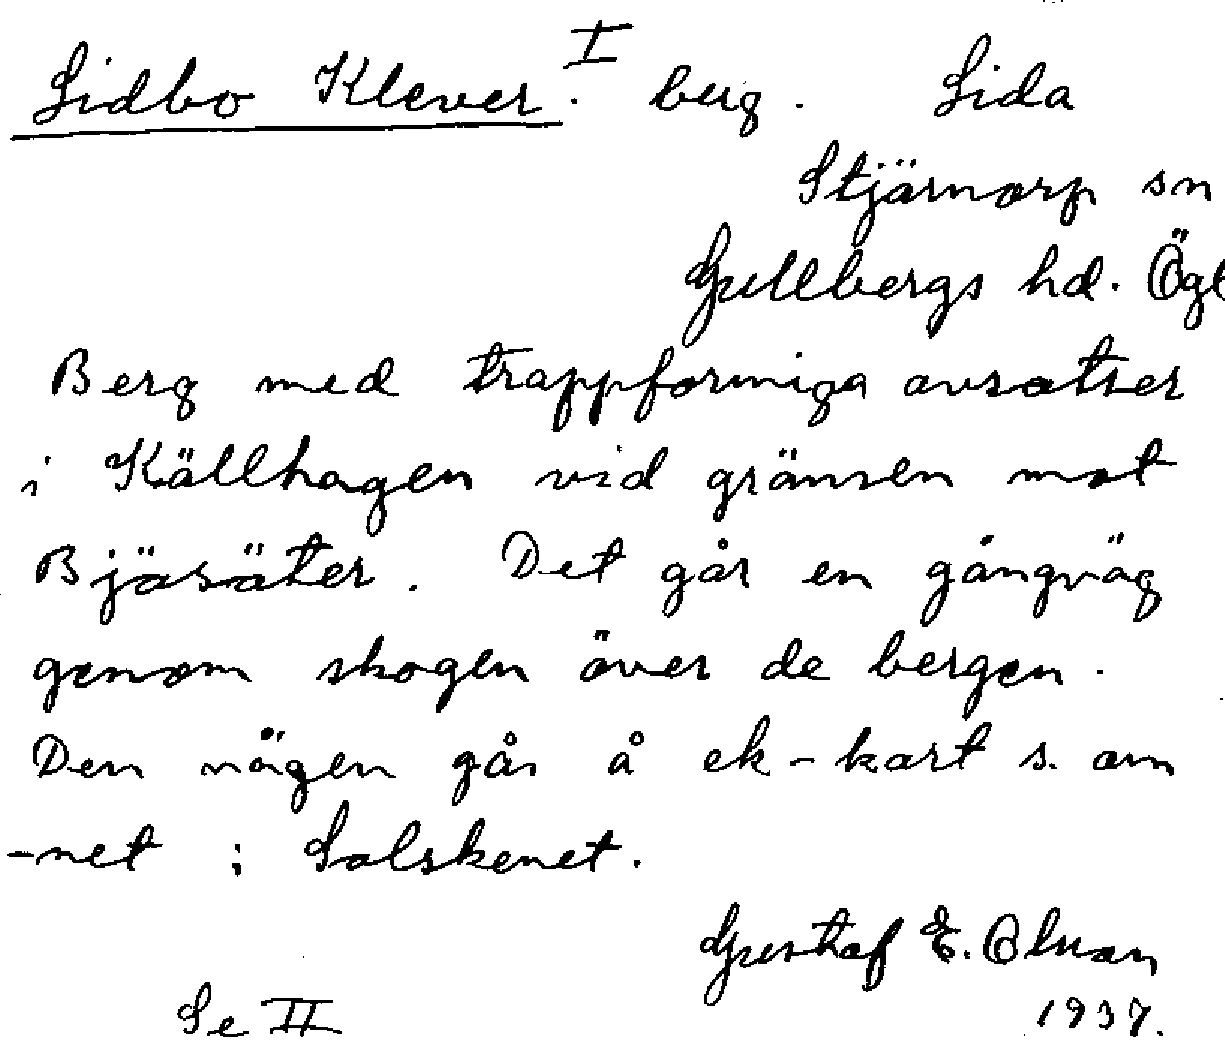 Lidbo Klever. I berg. Lida
Stjärnorp sn
Gullbergs hd. Ögl
Berg med trappformiga avsatser
i Källhagen vid gränsen mot
Bjäsäter. Det går en gångväg
genom skogen över de bergen.
Den vägen går å ek-kart s. om
-net i Solskenet.
Gustaf E. Olsson
1937.
Se II